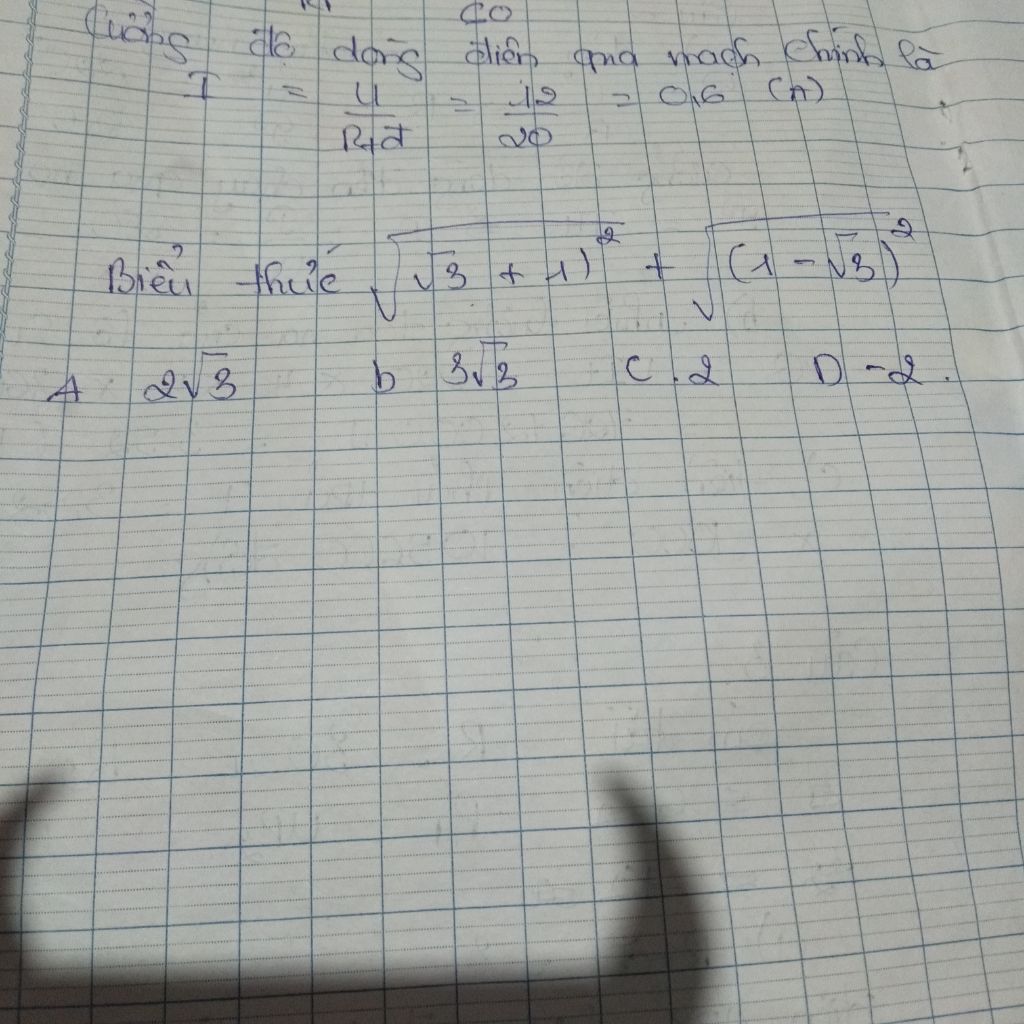 Cường độ dòng điện qua mạch chính là
I = U/Rtđ = 12/20 = 0,6 (A)
Biểu thức √(√3 + 1)² + √(1 - √3)²
A 2√3 b 3√3 C. 2 D -2.